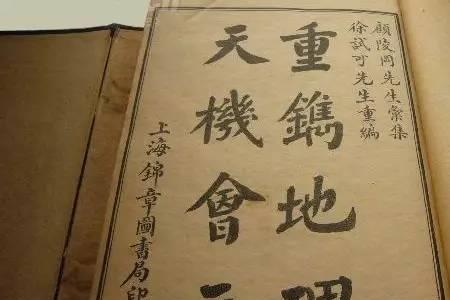 顧陵岡先生彙集
徐試可先生重編
重鐫地
天機會
上海錦章圖書局印